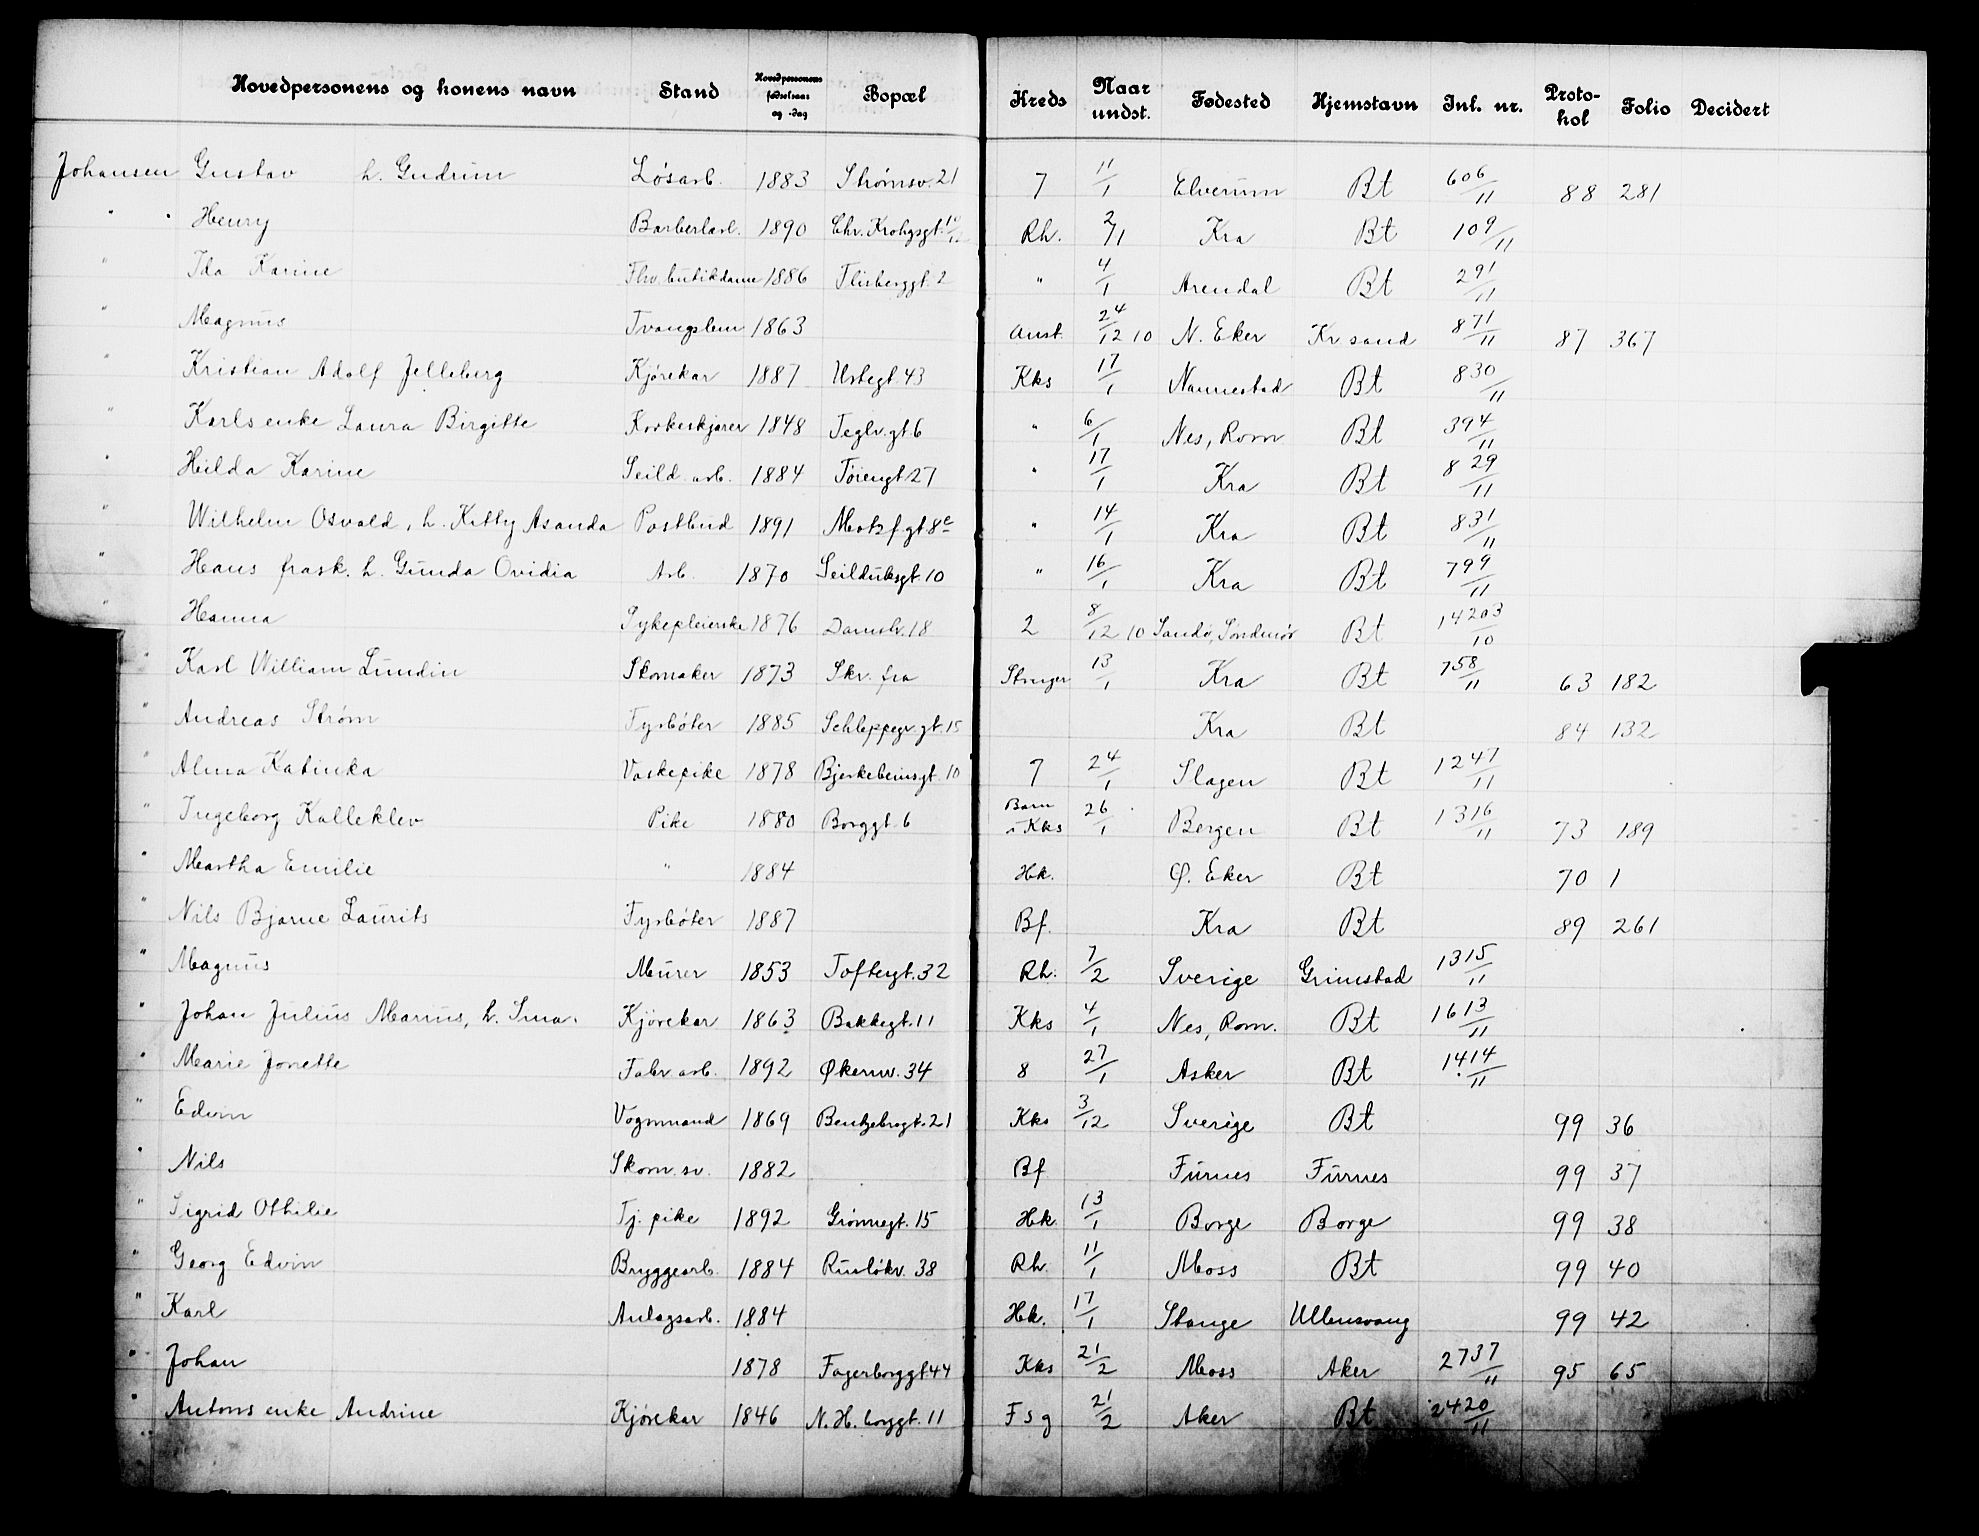 Hovedpersonens og konens navn Stand Hovedpersonens fødselsaar og -dag Bopæl Kreds Naar undst. Fødested Hjemstavn Inl. nr. Protokol Folio Decidert
Johansen Gustav h. Gudrun Løsarb. 1883 Strømsv. 21 7 11/1 Elverum Bt 606/11 88 281
" " Henry Barberlærl. 1890 Chr. Krohgsgt. Rh. 2/1 Kra Bt 109/11
" Ida Karine Fhv. butikdame 1886 Flisberggt. 2 " 4/1 Arendal Bt 291/11
" Magnus Tvangslem 1863 Anst. 24/12 10 N. Eker Kr sand 871/11 87 367
" Kristian Adolf Jelleberg Kjørekar 1887 Urtegt. 43 Kks 17/1 Nannestad Bt 830/11
" Karls enke Laura Birgitte Korkeskjærer 1848 Teglv. gt 6 " 6/1 Nes, Rom Bt 394/11
" Hilda Karine Seild. arb. 1884 Tøiengt 27 " 17/1 Kra Bt 829/11
" Wilhelm Osvald, h. Kitty Asanda Postbud 1891 Motzf. gt. 8c " 14/1 Kra Bt 831/11
" Hans frask. h. Gunda Ovidia Arb. 1870 Seilduksgt. 10 " 16/1 Kra Bt 799/11
" Hanna Sykepleierske 1876 Damslv. 18 2 8/12 10 Sandø, Søndmør Bt 14203/10
" Karl William Lundin Skomaker 1873 Skr. fra Stvnger 13/1 Kra Bt 758/11 63 182
" Andreas Strøm Fyrbøter 1885 Schleppegr. gt. 15 Kra Bt 84 132
" Alma Katinka Vaskepike 1878 Bjerkebeinsgt. 10 7 24/1 Slagen Bt 1247/11
" Ingeborg Kalleklev Pike 1880 Borggt. 6 Barn i Kks 26/1 Bergen Bt 1316/11 73 189
" Martha Emilie " 1884 Hk. Ø. Eker Bt 70 1
" Nils Bjarne Laurits Fyrbøter 1887 Bf. Kra Bt 89 261
" Magnus Murer 1853 Toftesgt. 32 Rh. 7/2 Sverige Grimstad 1315/11
" Johan Julius Marius, h. Sina. Kjørekar 1863 Bakkegt. 11 Kks 4/1 Nes, Rom. Bt 1613/11
" Marie Jonette Fabr. arb. 1892 Økernv. 34 8 27/1 Asker Bt 1414/11
" Edvin Vognmand 1869 Bentzebrogt. 21 Kks 3/12 Sverige Bt 99 36
" Nils Skom. sv. 1882 Bf. Furnes Furnes 99 37
" Sigrid Othilie Tj. pike 1892 Grønnegt. 15 Hk. 13/1 Borge Borge 99 38
" Georg Edvin Bryggearb. 1884 Rusløkv. 38 Rh. 11/1 Moss Bt 99 40
" Karl Anlagsarb. 1884 Hk. 17/1 Stange Ullensvang 99 42
" Johan 1878 Fagerborggt 44 Kks 21/2 Moss Aker 2737/11 95 65
" Antons enke Andrine Kjørekar 1846 N. H. bryggt. 11 Fsg 21/2 Aker Bt 2420/11